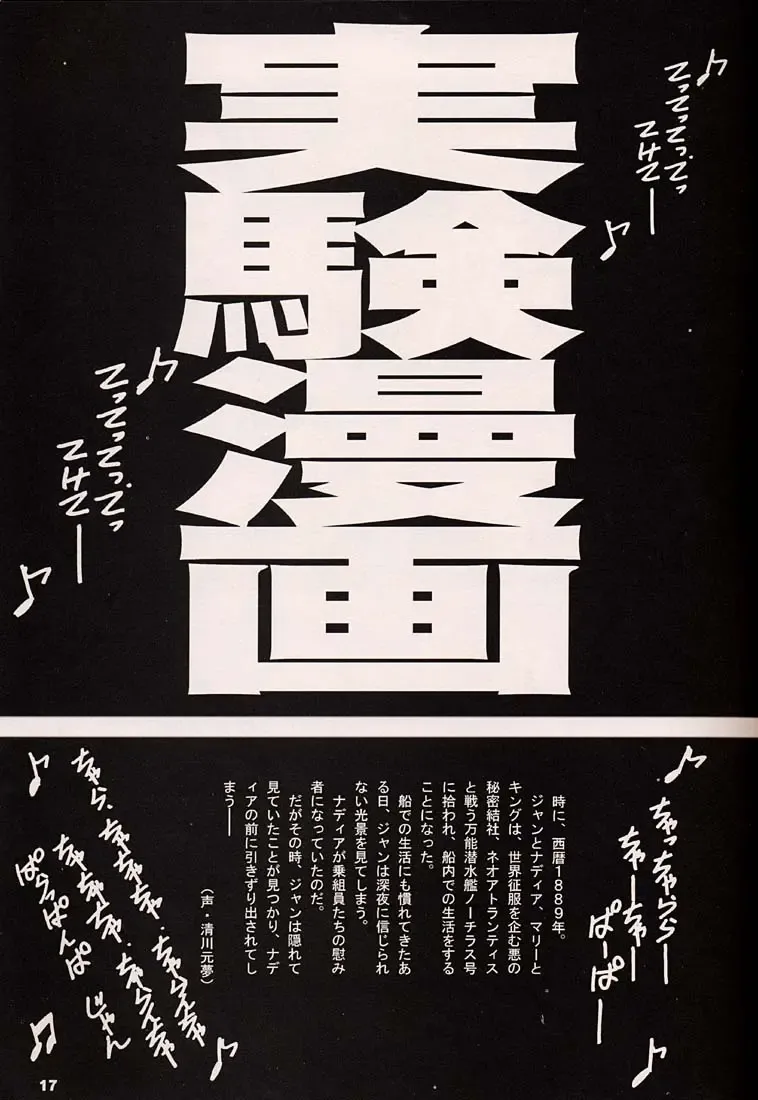 実験漫画
♪てってってってっ
てけてー♪
♪てってってってっ
てけてー♪
時に、西暦1889年。
ジャンとナディア、マリーと
キングは、世界征服を企む悪の
秘密結社、ネオアトランティス
と戦う万能潜水艦ノーチラス号
に拾われ、船内での生活をする
ことになった。
船での生活にも慣れてきたあ
る日、ジャンは深夜に信じられ
ない光景を見てしまう。
ナディアが乗組員たちの慰み
者になっていたのだ。
だがその時、ジャンは隠れて
見ていたことが見つかり、ナデ
ィアの前に引きずり出されてし
まう——
（声・清川元夢）
♪ちゃっちゃららー
ちゃーちゃー
ぱーぱー♪
17